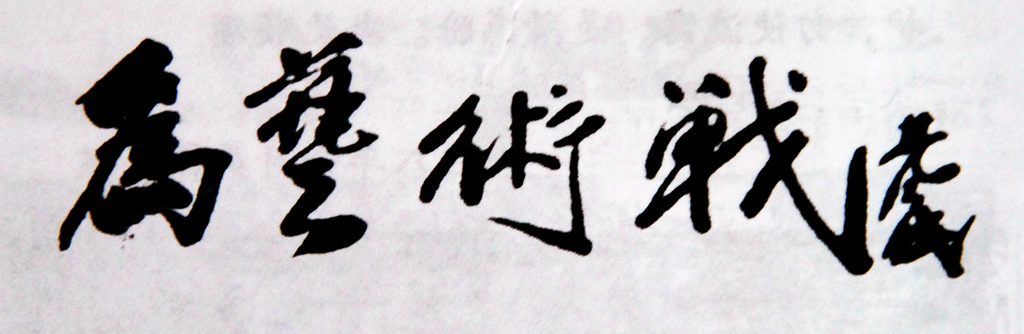 為藝術戰